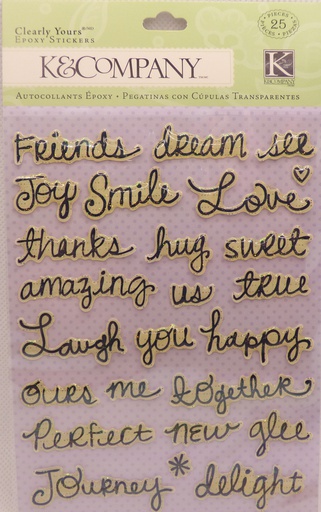 Clearly Yours
Epoxy Stickers
PIECES 25 PIECES
K&COMPANY
K
K&COMPANY
Autocollants Époxy • Pegatinas con Cúpulas Transparentes
Friends dream see
Joy Smile Love
thanks hug sweet
amazing us true
Laugh you happy
ours me together
Perfect new glee
Journey * delight